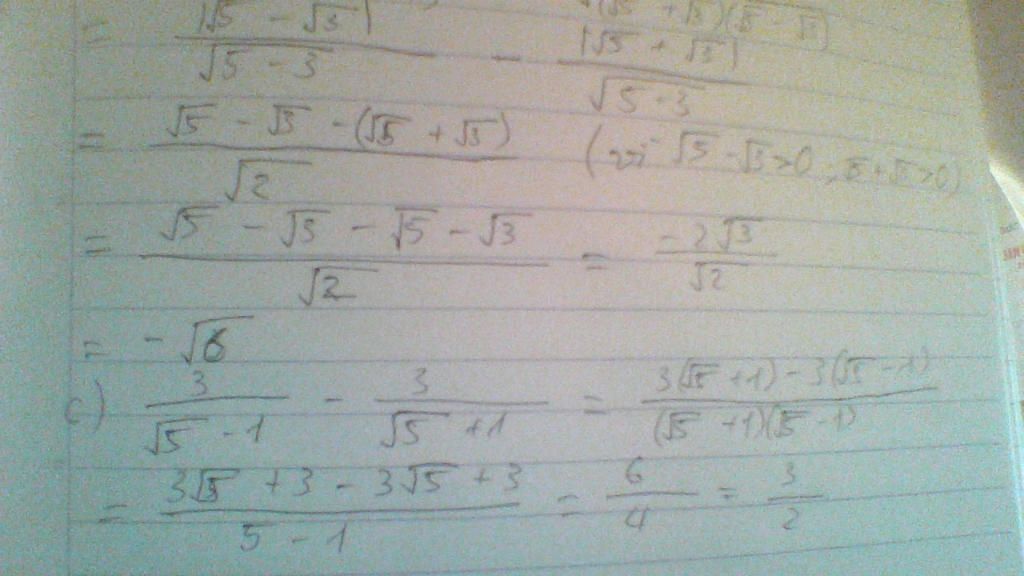 = |√5 - √3| / √5-3 - |√5 + √3| / √5-3 (√5 + √3)(√5 - √3)
= √5 - √3 - (√5 + √3) / √2 (vì √5 - √3 > 0, √5 + √3 > 0)
= √5 - √3 - √5 - √3 / √2 = -2√3 / √2
= -√6
c) 3 / √5 - 1 - 3 / √5 + 1 = 3(√5 + 1) - 3(√5 - 1) / (√5 + 1)(√5 - 1)
= 3√5 + 3 - 3√5 + 3 / 5 - 1 = 6 / 4 = 3 / 2